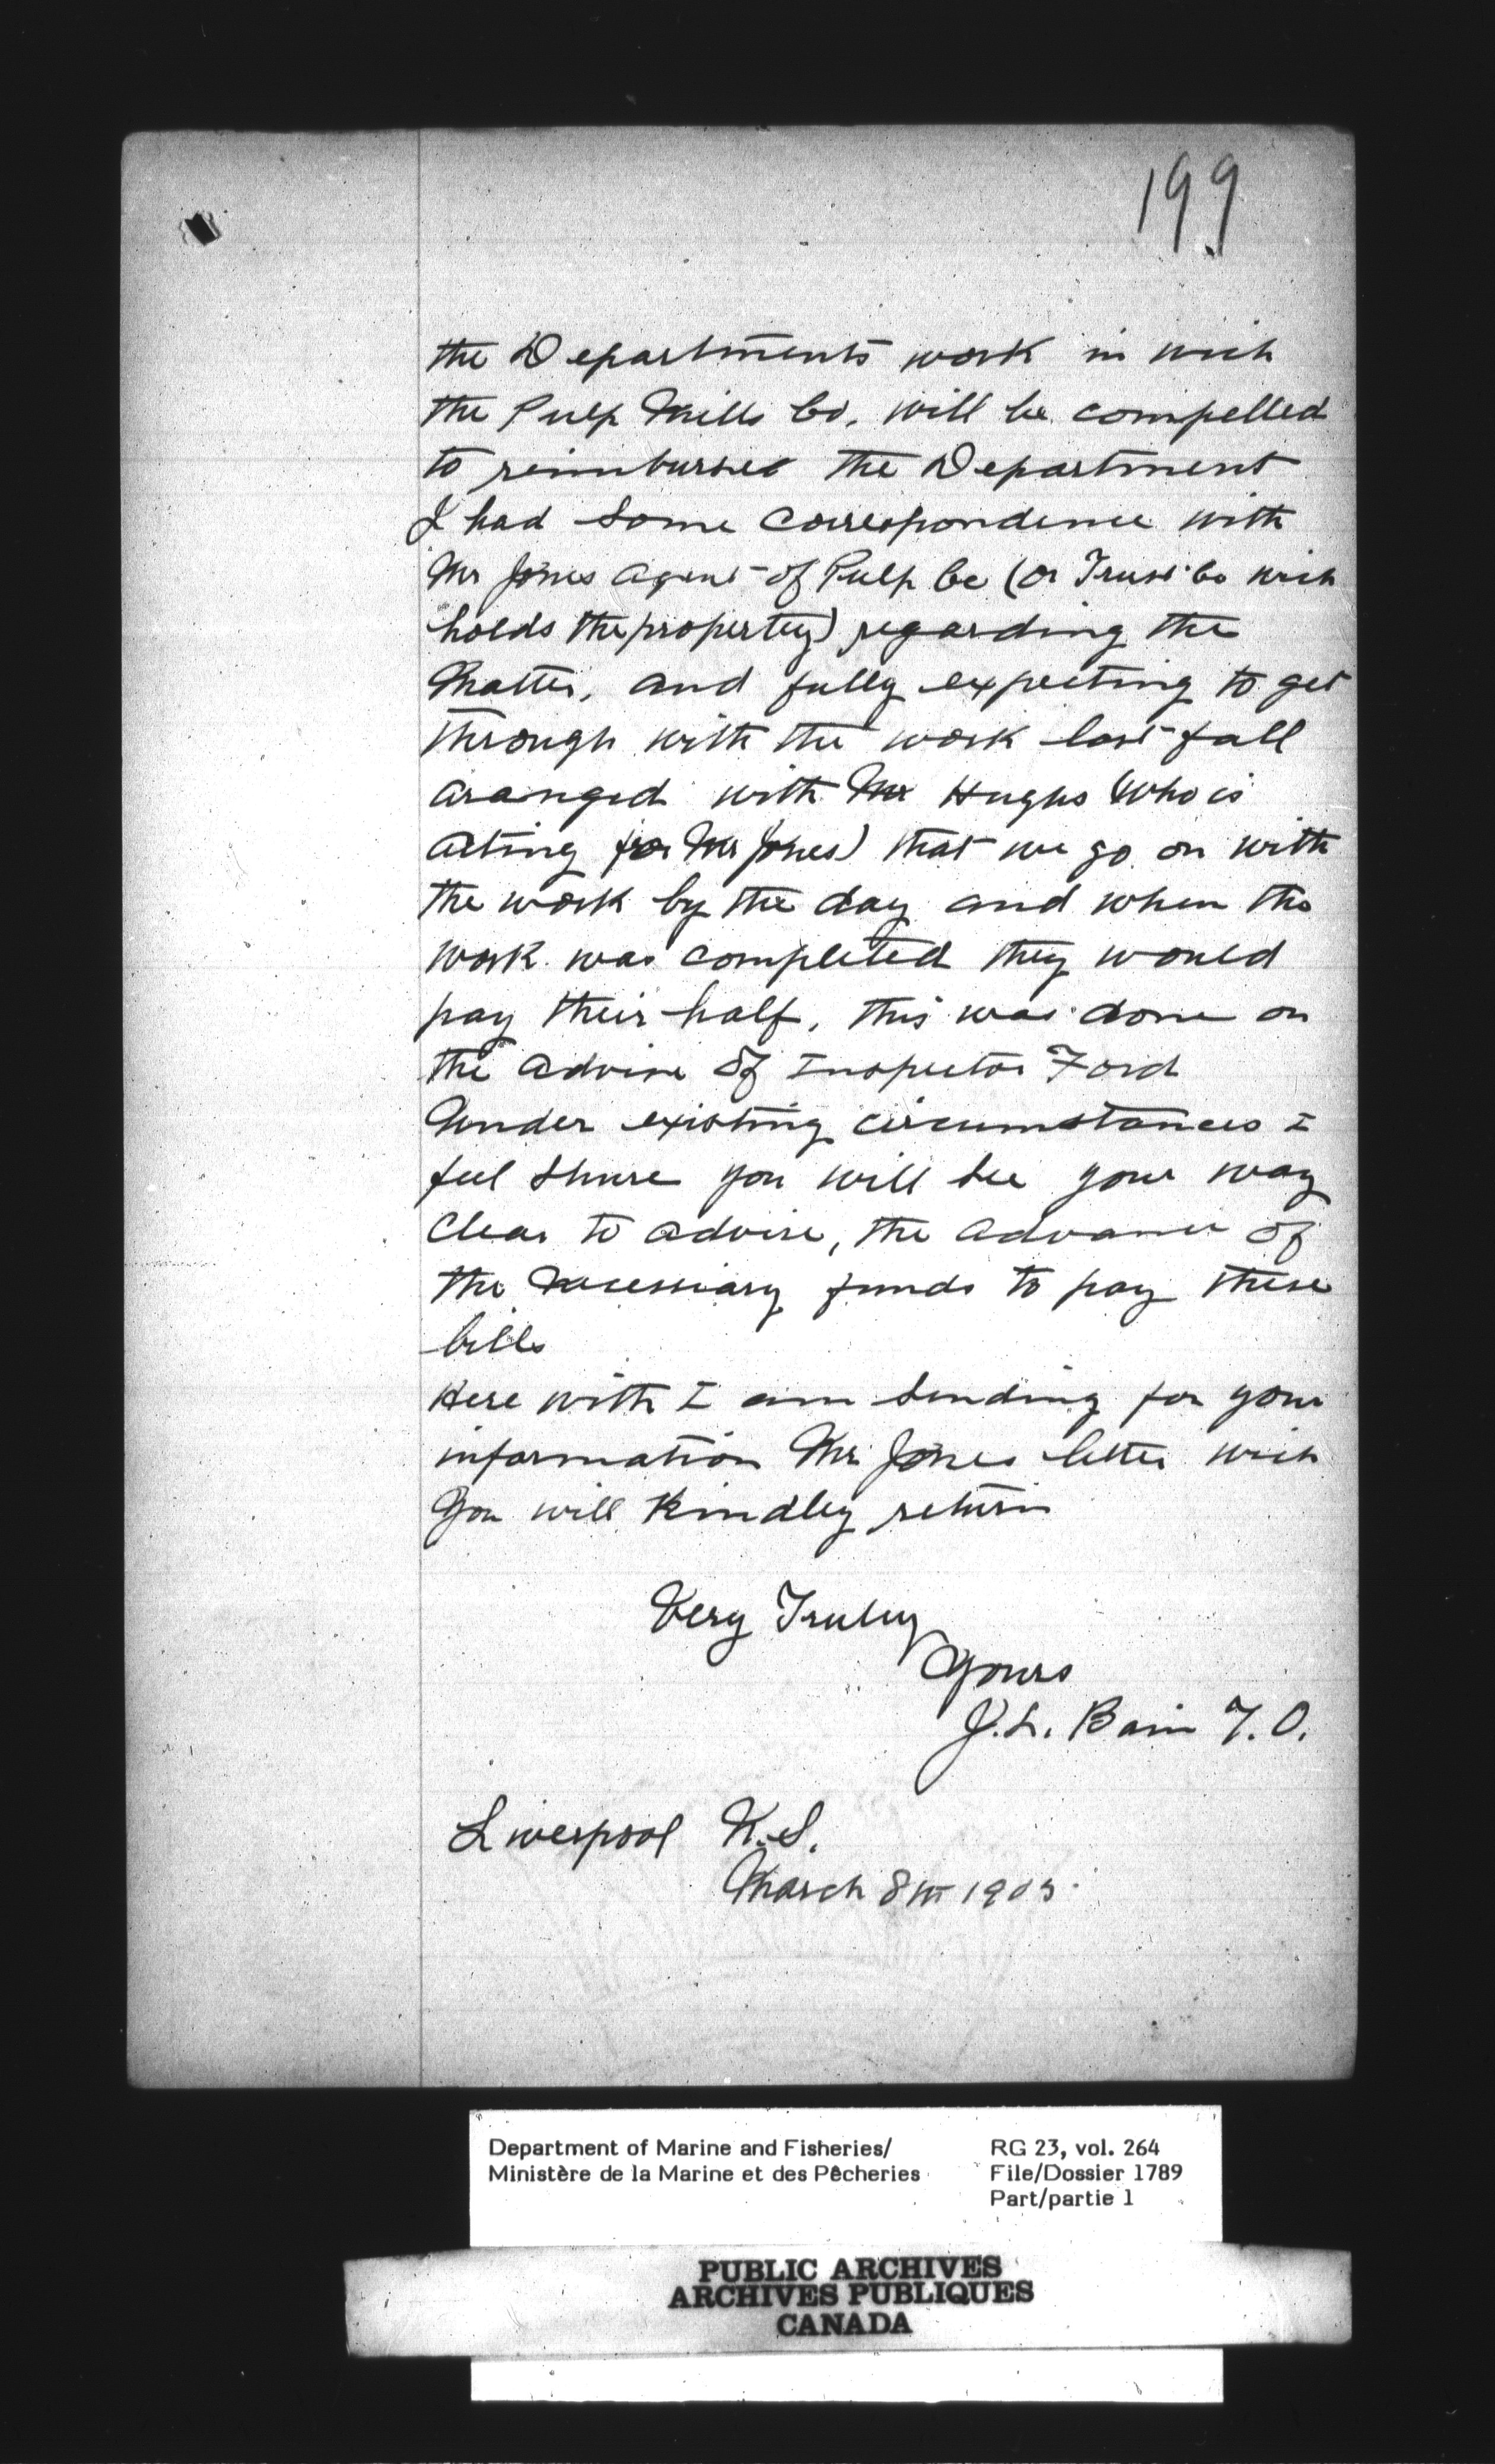 199
the Departments work in wich
the Pulp Mills Co. will be compelled
to reimburse the Department
I had some correspondence with
Mr Jones agent of Pulp Co (or Trust Co wich
holds the property) regarding the
Matter, and fully expecting to get
through with the work last fall
aranged with Mr Hughs (who is
acting for Mr Jones) that we go on with
the work by the day and when the
work was completed they would
pay their half, this was done on
the advise of Inspector Ford
Under existing circumstances I
feel shure you will see your way
Clear to advise, the advance of
the necessiary funds to pay these
bills
Here with I am sending for your
information Mr Jones letter wich
you will kindley return
Very Truley
Yours
J.L. Bain F.O.
Liverpool N.S.
March 8th 1905
Department of Marine and Fisheries/
Ministère de la Marine et des Pêcheries
RG 23, vol. 264
File/Dossier 1789
Part/partie 1
PUBLIC ARCHIVES
ARCHIVES PUBLIQUES
CANADA